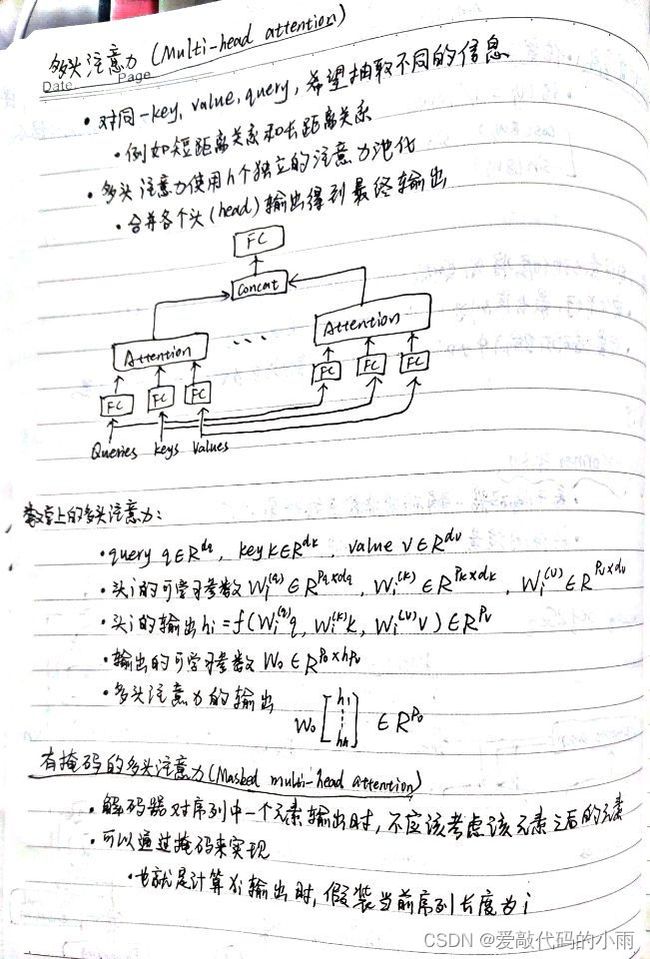 多头注意力 (Multi-head attention)
Date Page
• 对同一key, value, query, 希望抽取不同的信息
• 例如短距离关系和长距离关系
• 多头注意力使用h个独立的注意力池化
• 合并各个头(head)输出得到最终输出
FC
Concat
Attention ... Attention
FC FC FC FC FC FC
Queries keys Values
数学上的多头注意力:
• query q∈R^dq, key k∈R^dk, value v∈R^dv
• 头i的可学习参数 Wi^(q)∈R^Pq×dq, Wi^(k)∈R^Pk×dk, Wi^(v)∈R^Pv×dv
• 头i的输出 hi=f(Wi^(q)q, Wi^(k)k, Wi^(v)v)∈R^Pv
• 输出的可学习参数 Wo∈R^Po×hPv
• 多头注意力的输出
Wo [h1 ⋮ hh] ∈R^Po
有掩码的多头注意力(Masked multi-head attention)
• 解码器对序列中一个元素输出时, 不应该考虑该元素之后的元素
• 可以通过掩码来实现
• 也就是计算xi输出时, 假装当前序列长度为i
CSDN @爱敲代码的小雨